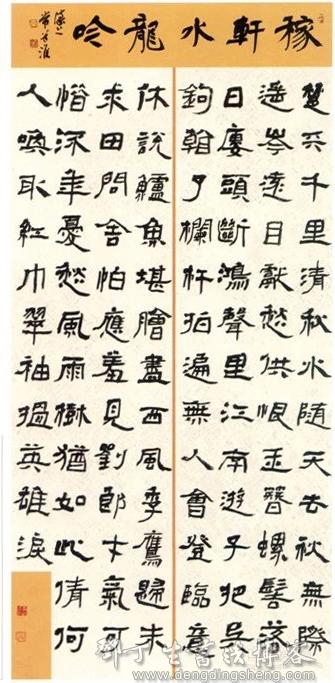 稼軒水龍吟
楚天千里清秋水隨天去秋無際
遥岑遠目獻愁供恨玉簪螺髻落
日廔頭斷鴻聲里江南遊子把吴
鉤看了欄杆拍遍無人會登臨意
休說鱸魚堪膾盡西風季鷹歸未
求田問舍怕應羞見劉郎才氣可
惜流年憂愁風雨樹猶如此倩何
人喚取紅巾翠袖揾英雄淚
邓丁生书法博客
www.dengdingsheng.com